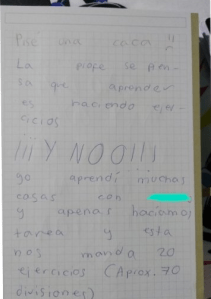 Pone una cosa !!
La profe se pien-
sa que aprender
es haciendo ejer-
cicios
¡¡¡Y NOO!!!
yo aprendí muchas
cosas con
y apenas haciamos
tarea y esta
nos manda 20
ejercicios (Aprox. 70
divisiones)